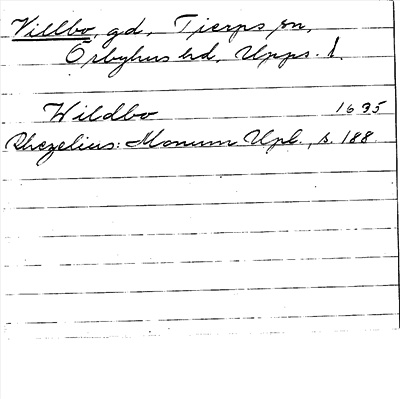 Villbo, gd, Tierps sn,
Örbyhus hd, Upps. l.
Wildbo 1635
Rhezelius: Monum Upl., s. 188